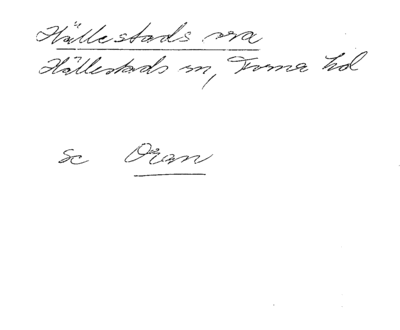 Hällestads ora
Hällestads sn, Torna hd
se Oran